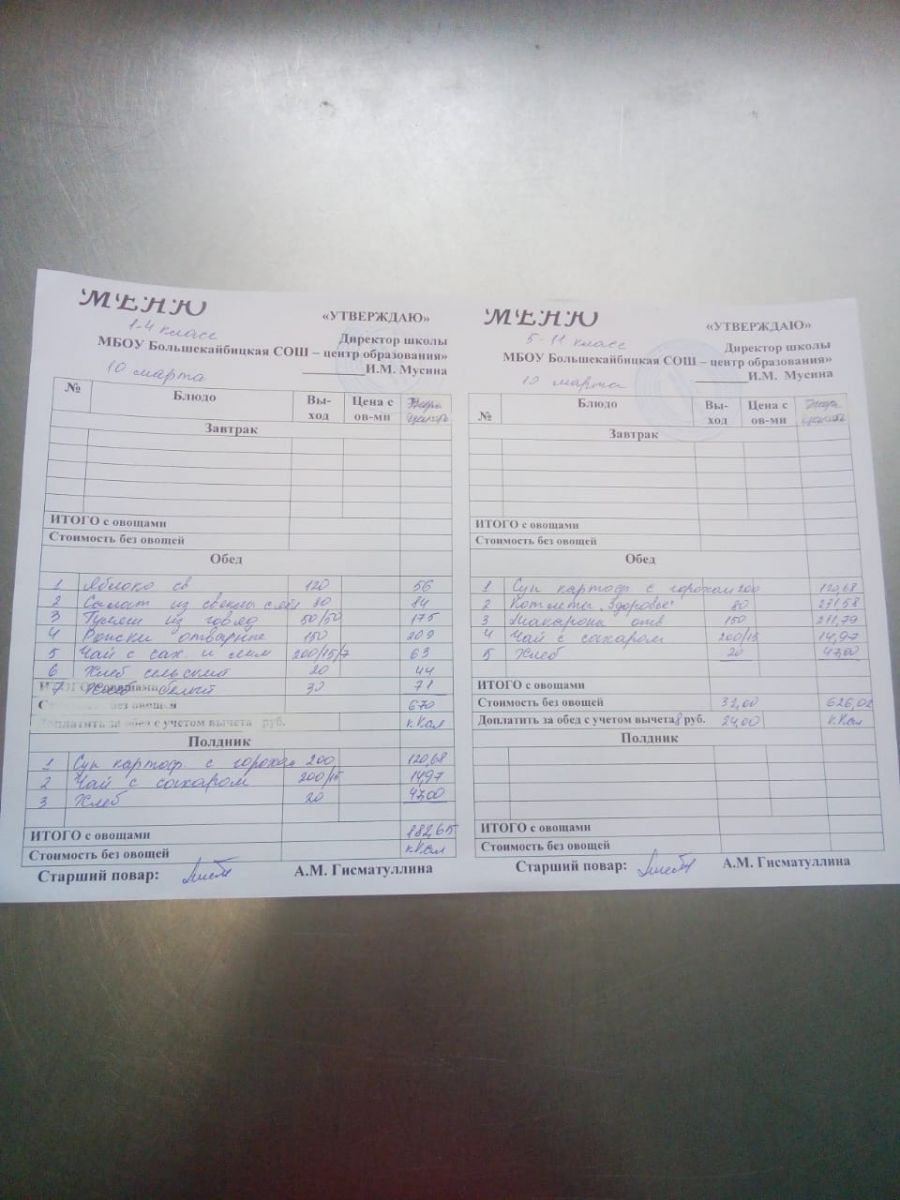 МЕНЮ
1-4 класс
«УТВЕРЖДАЮ»
Директор школы
МБОУ Большекайбицкая СОШ – центр образования»
10 марта
И.М. Мусина
№ Блюдо Вы-ход Цена с ов-ми Энерг. ценность
Завтрак
ИТОГО с овощами
Стоимость без овощей
Обед
1 Яблоко св 120 56
2 Салат из свеклы с 80 84
3 Гуляш из говяд 50/50 175
4 отварные 150 209
5 Чай с сах. и лим 200/15/7 63
6 Хлеб сельский 20 44
7 Хлеб белый 30 71
670
Доплатить за обед с учетом вычета руб. кКал
Полдник
1 Суп картоф. с горохом 200 120,68
2 Чай с сахаром 200/15 14,97
3 Хлеб 20 47,00
ИТОГО с овощами 182,65
Стоимость без овощей кКал
Старший повар: А.М. Гисматуллина
МЕНЮ
5-11 класс
«УТВЕРЖДАЮ»
Директор школы
МБОУ Большекайбицкая СОШ – центр образования»
10 марта
И.М. Мусина
№ Блюдо Вы-ход Цена с ов-ми Энерг. ценность
Завтрак
ИТОГО с овощами
Стоимость без овощей
Обед
1 Суп картоф с горохом 200 120,68
2 Котлета "Здоровье" 80 231,58
3 Макароны отв 150 211,79
4 Чай с сахаром 200/15 14,97
5 Хлеб 20 47,00
ИТОГО с овощами
Стоимость без овощей 32,00 626,02
Доплатить за обед с учетом вычета 8 руб. 24,00 кКал
Полдник
ИТОГО с овощами
Стоимость без овощей
Старший повар: А.М. Гисматуллина